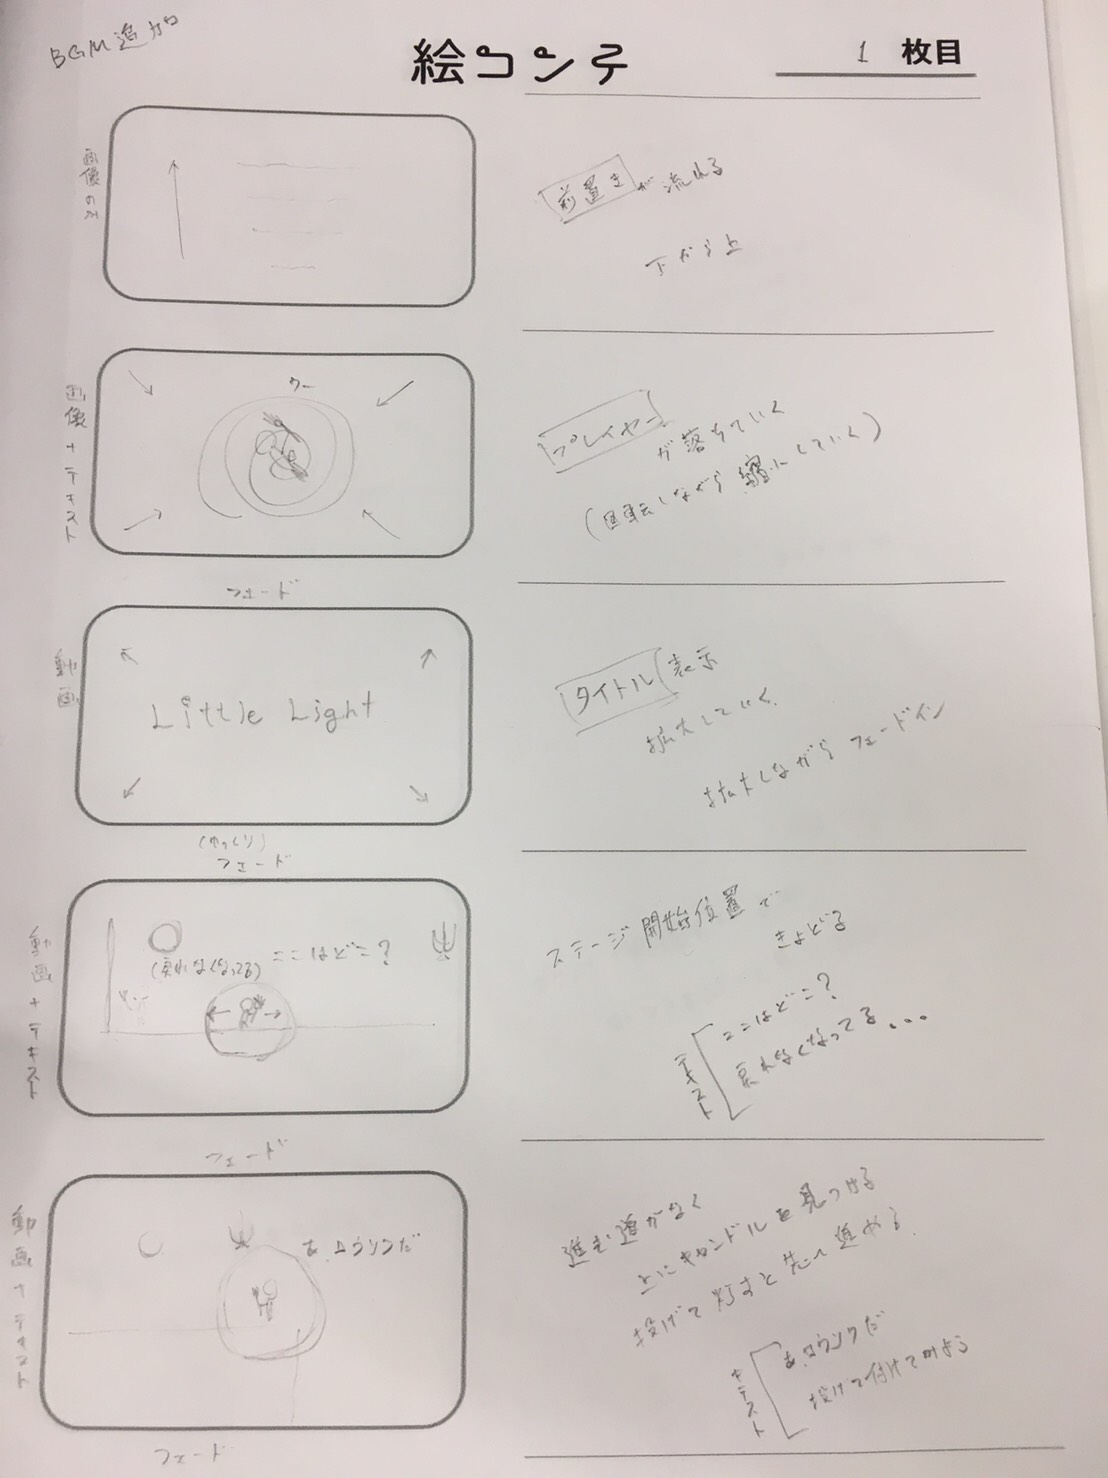 BGM追加
絵コンテ
1 枚目
画像のみ
前置きが流れる
下から上
画像+テキスト
プレイヤーが落ちていく
(回転しながら縮小していく)
フェード
動画
Little Light
タイトル表示
拡大していく
拡大しながらフェードイン
(ゆっくり)
フェード
動画+テキスト
ここはどこ?
(戻れなくなってる)
ステージ開始位置で
きょどる
テキスト
ここはどこ?
戻れなくなってる...
フェード
動画+テキスト
あ、ロウソクだ
進む道がなく
上にキャンドルを見つける
投げて灯すと先へ進める
テキスト
あ、ロウソクだ
投げて付けてみよう
フェード